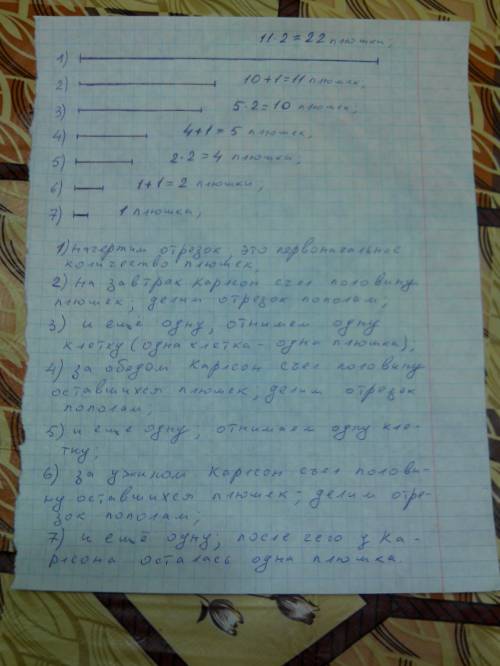 1) 11·2=22 плюшки;
2) 10+1=11 плюшек;
3) 5·2=10 плюшек;
4) 4+1=5 плюшек;
5) 2·2=4 плюшки;
6) 1+1=2 плюшки;
7) 1 плюшка;
1) начертим отрезок, это первоначальное
количество плюшек,
2) на завтрак Карлсон съел половину
плюшек; делим отрезок пополам;
3) и ещё одну, отнимем одну
клетку (одна клетка - одна плюшка),
4) за обедом Карлсон съел половину
оставшихся плюшек, делим отрезок
пополам;
5) и еще одну; отнимаем одну кле-
тку;
6) за ужином Карлсон съел полови-
ну оставшихся плюшек - делим отре-
зок пополам;
7) и ещё одну; после чего у Ка-
рлсона осталась одна плюшка.